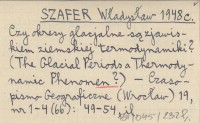 SZAFER Władysław 1948 c.
Czy okresy glacjalne są zjawis-
kiem ziemskiej termodynamiki?
(The Glacial Periods a Thermody-
namic Phenomen?) — Czaso-
pismo Geograficzne (Wrocław) 19,
nr 1-4 (66): 49-54, il